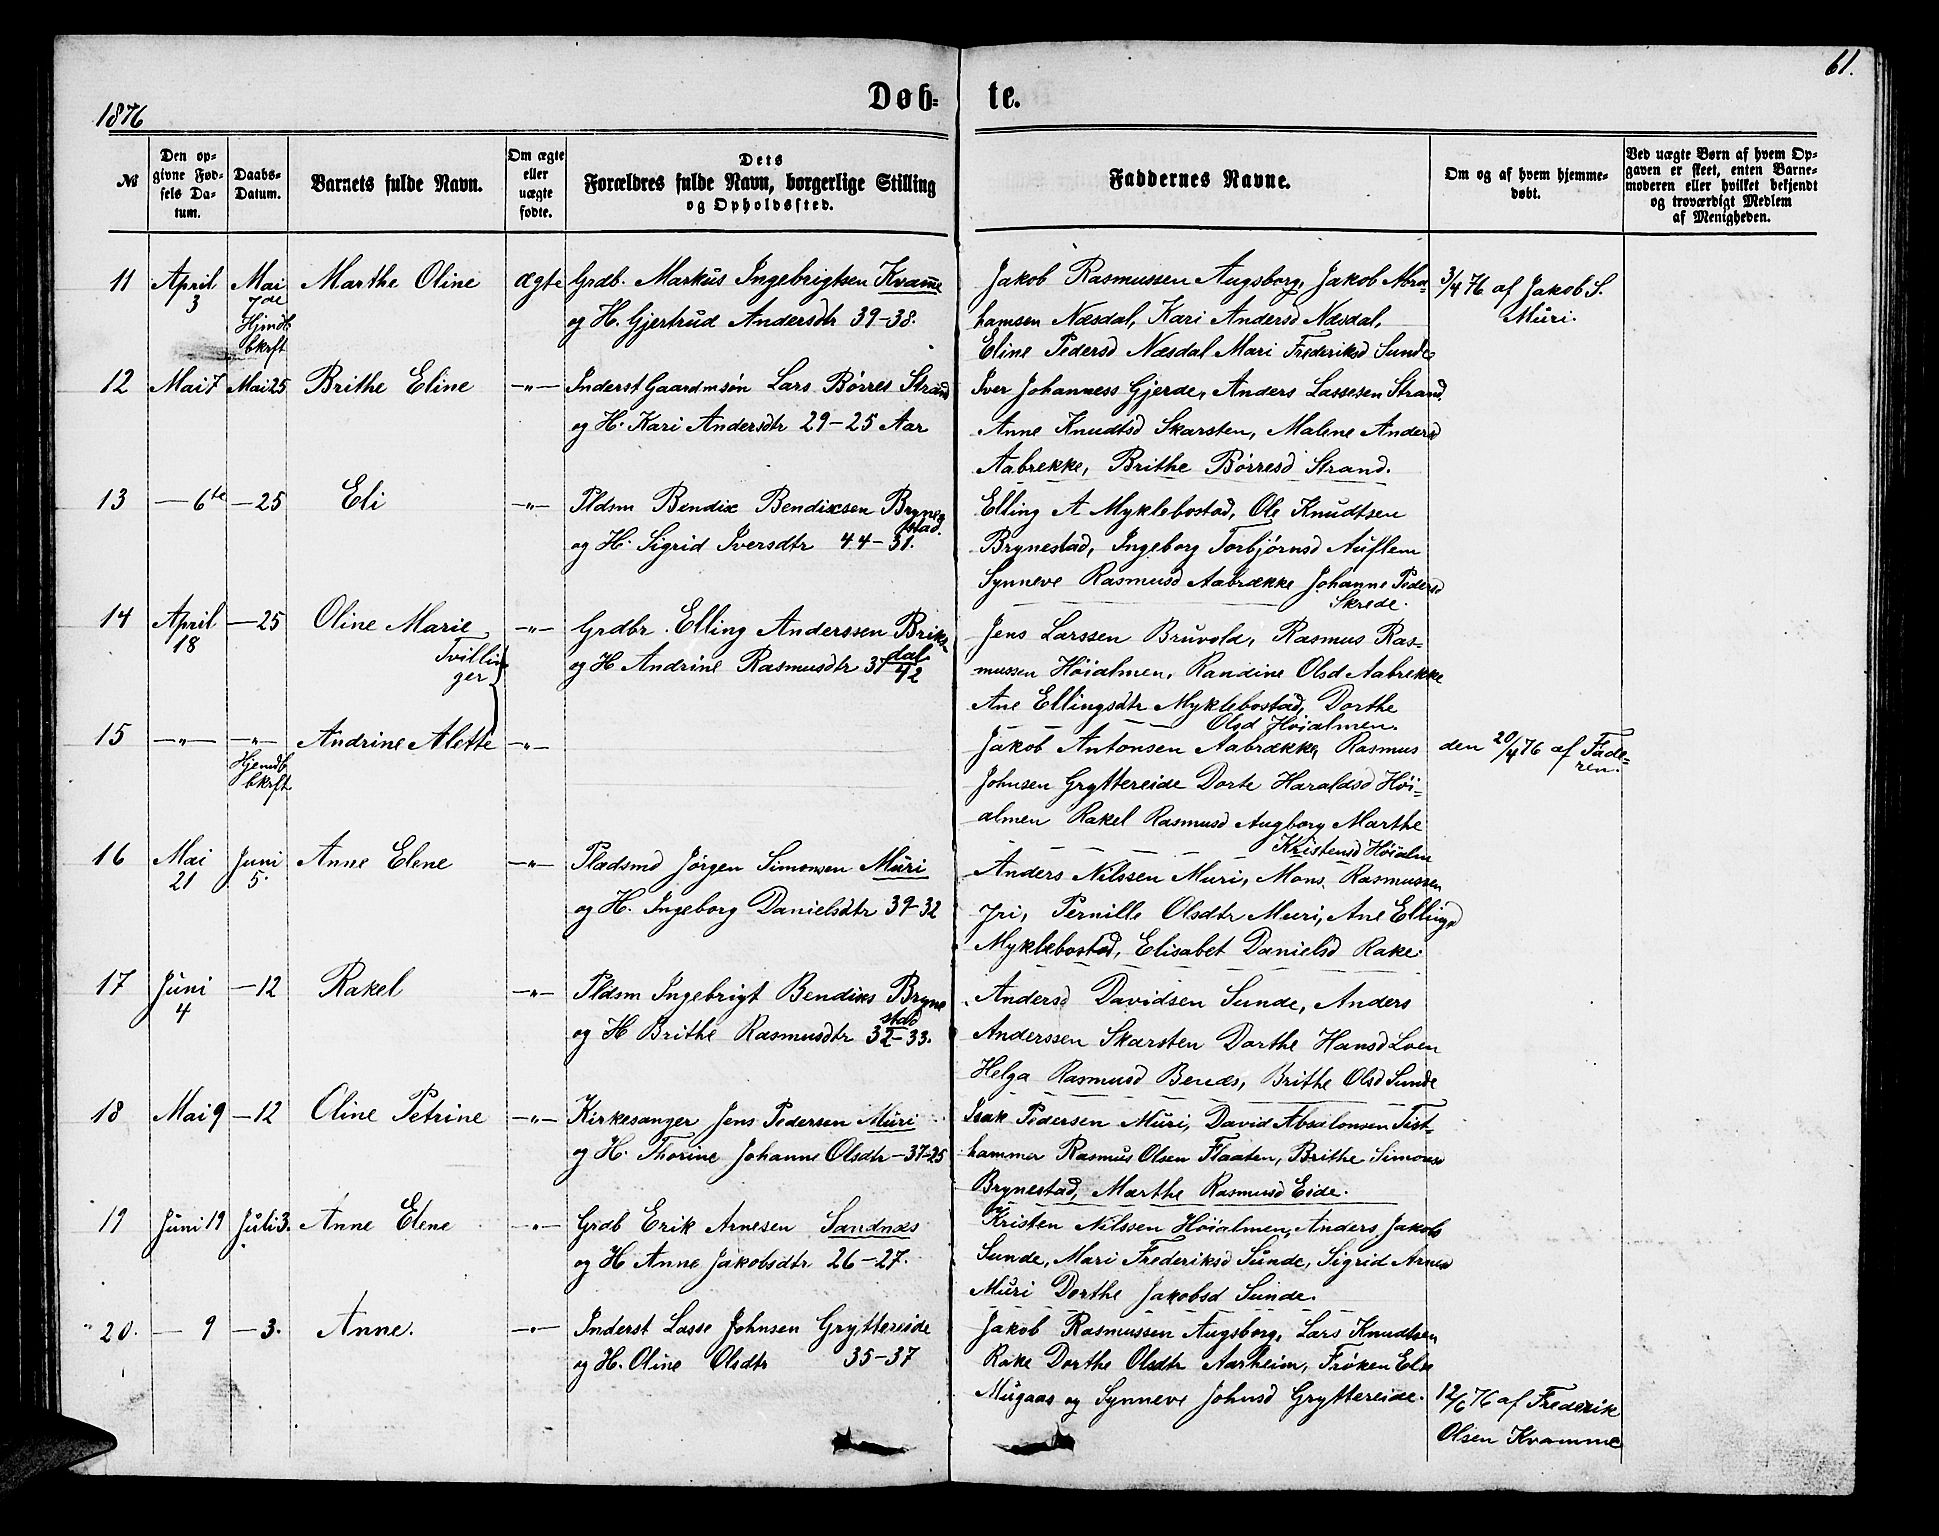 61.
1876
Døb= te.
№
Den op=
givne Fød=
sels Da=
tum.
Daabs=
Datum.
Barnets fulde Navn.
Om ægte
eller
uægte
fødte.
Dets
Forældres fulde Navn, borgerlige Stilling
og Opholdssted.
Faddernes Navne.
Om og af hvem hjemme=
døbt.
Ved uægte Børn af hvem Op=
gaven er skeet, enten Barne=
moderen eller hvilket bekjendt
og troværdigt Medlem
af Menigheden.
11 April 3 Mai 7de Hjmdb. bkrft Marthe Oline Ægte
Grdb. Markus Ingebrigtsen Kvamme
og H. Gjertrud Andersdtr 39-38.
Jakob Rasmussen Augsborg, Jakob Abra=
hamsen Næsdal, Kari Andersd Næsdal,
Eline Pedersd Næsdal Mari Frederiksd Sunde
3/4 76 af Jakob S.
Muri.
12 Mai 7 Mai 25 Brithe Eline —"—
Inderst Gaardmsøn Lars Børres Strand
og H. Kari Andersdtr 29-25 Aar
Iver Johanness Gjerde, Anders Lassesen Strand
Anne Knudtsd Skarsten, Malene Andersd
Aabrekke, Brithe Børresd Strand.
13 — 6te — 25 Eli —"—
Pldsm Bendix Bendixsen Brynes
stad.
og H. Sigrid Iversdtr 44-31.
Elling A Myklebostad, Ole Knudtsen
Brynestad, Ingeborg Torbjørnsd Auflem
Synneve Rasmusd Aabrække Johanne Pedersd
Skrede.
14 April 18 — 25 Oline Marie —"—
Tvillin
ger
Grdbr. Elling Anderssen Briks
dal
og H Andrine Rasmusdtr 37 42
Jens Larssen Bruvold, Rasmus Ras=
mussen Høialmen, Randine Olsd Aabrekke
Ane Ellingsdtr Myklebostad, Dorthe
Olsd Høialmen.
15 —"— —"— Hjemdb bkrft Andrine Alette —"—
Jakob Antonsen Aabrække Rasmus
Johnsen Gryttereide Dorte Haraldsd Høi=
almen Rakel Rasmusd Augborg Marthe
Kristensd Høialm
den 20/4 76 af Fade=
ren.
16 Mai 21 Juni 5. Anne Elene —"—
Pladsmd Jørgen Simonsen Muri
og H. Ingeborg Danielsdtr 39-32
Anders Nilssen Muri, Mons Rasmussen
Jri, Pernille Olsdtr Muri, Ane Ellingsd
Myklebostad, Elisabet Danielsd Rake.
17 Juni 4 — 12 Rakel —"—
Pldsm Ingebrigt Bendixs Bryne
stad
og H Brithe Rasmusdtr 32-33.
Andersd Davidsen Sunde, Anders
Anderssen Skarsten Dorthe Hansd Loen
Helga Rasmusd Benæs, Brithe Olsd Sunde
18 Mai 9 — 12 Oline Petrine —"—
Kirkesanger Jens Pedersen Muri
og H. Thorine Johanne Olsdtr — 37-25
Isak Pedersen Muri, David Absalonsen Tist=
hammer Rasmus Olsen Flaaten, Brithe Simonsd
Brynestad, Marthe Rasmusd Eide.
19 Juni 19 Juli 3. Anne Elene —"—
Grdb Erik Arnesen Sandnæs
og H Anne Jakobsdtr 26-27.
Kristen Nilssen Høialmen, Anders Jakobs
Sunde, Mari Frederiksd Sunde, Sigrid Arnesd
Muri Dorthe Jakobsd Sunde.
20. — 9 — 3. Anne. —"—
Inderst Lasse Johnsen Gryttereide
og H. Oline Olsdtr 35-37
Jakob Rasmussen Augsborg, Lars Knudtsen
Rake Dorthe Olsdtr Aarheim, Frøken Else
Mugaas og Synneve Johnsd Gryttereide.
12/6 76 af Frederik
Olsen Kvamme